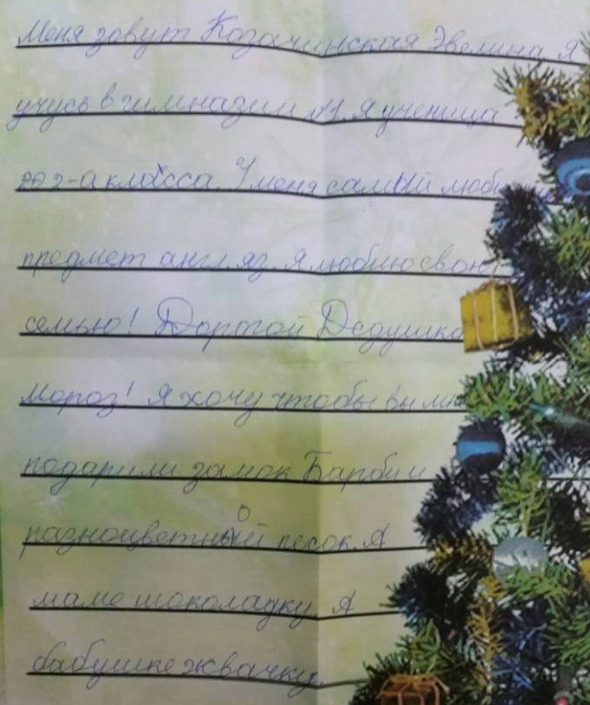 Меня зовут Козачинская Эвелина. Я
учусь в гимназии №1. Я ученица
2-а класса. У меня самый люби
предмет англ. яз. Я люблю свою
семью! Дортой Дедушка
Мороз! Я хочу чтобы вы мне
подарили замок Барби и
разноцветный песок. А
маме шоколадку. А
бабушке жвачку.